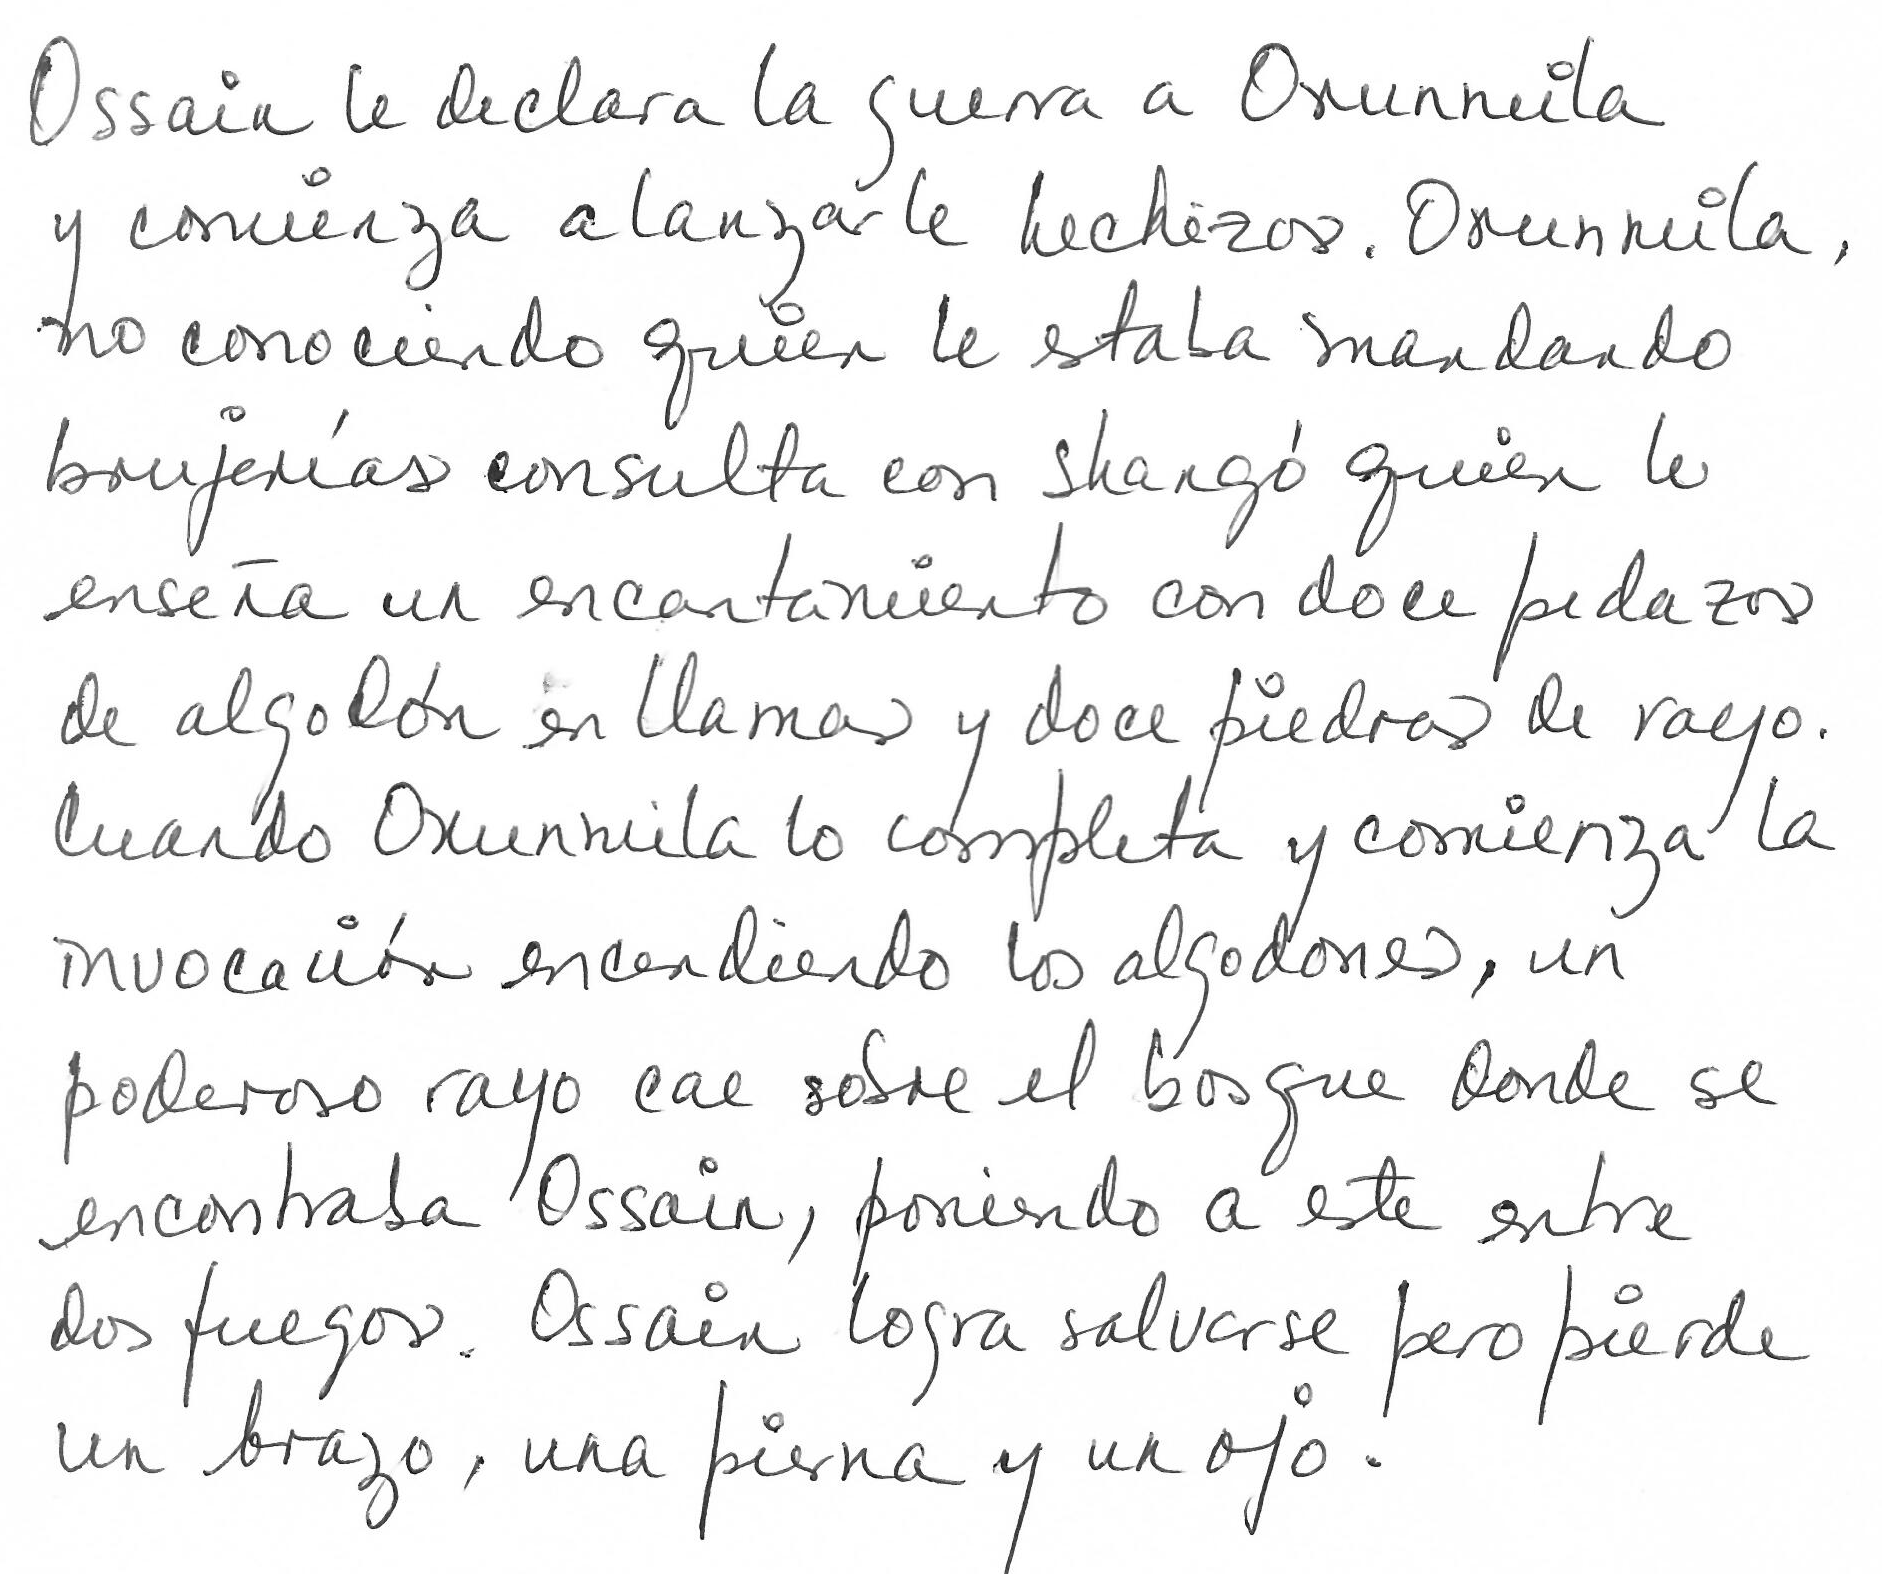 Ossain le declara la guerra a Orunmila
y comienza a lanzarle hechizos. Orunmila,
no conociendo quien le estaba mandando
brujerías consulta con Shangó quien le
enseña un encantamiento con doce pedazos
de algodón en llamas y doce piedras de rayo.
Cuando Orunmila lo completa y comienza la
invocación encendiendo los algodones, un
poderoso rayo cae sobre el bosque donde se
encontraba Ossain, poniendo a este entre
dos fuegos. Ossain logra salvarse pero pierde
un brazo, una pierna y un ojo.